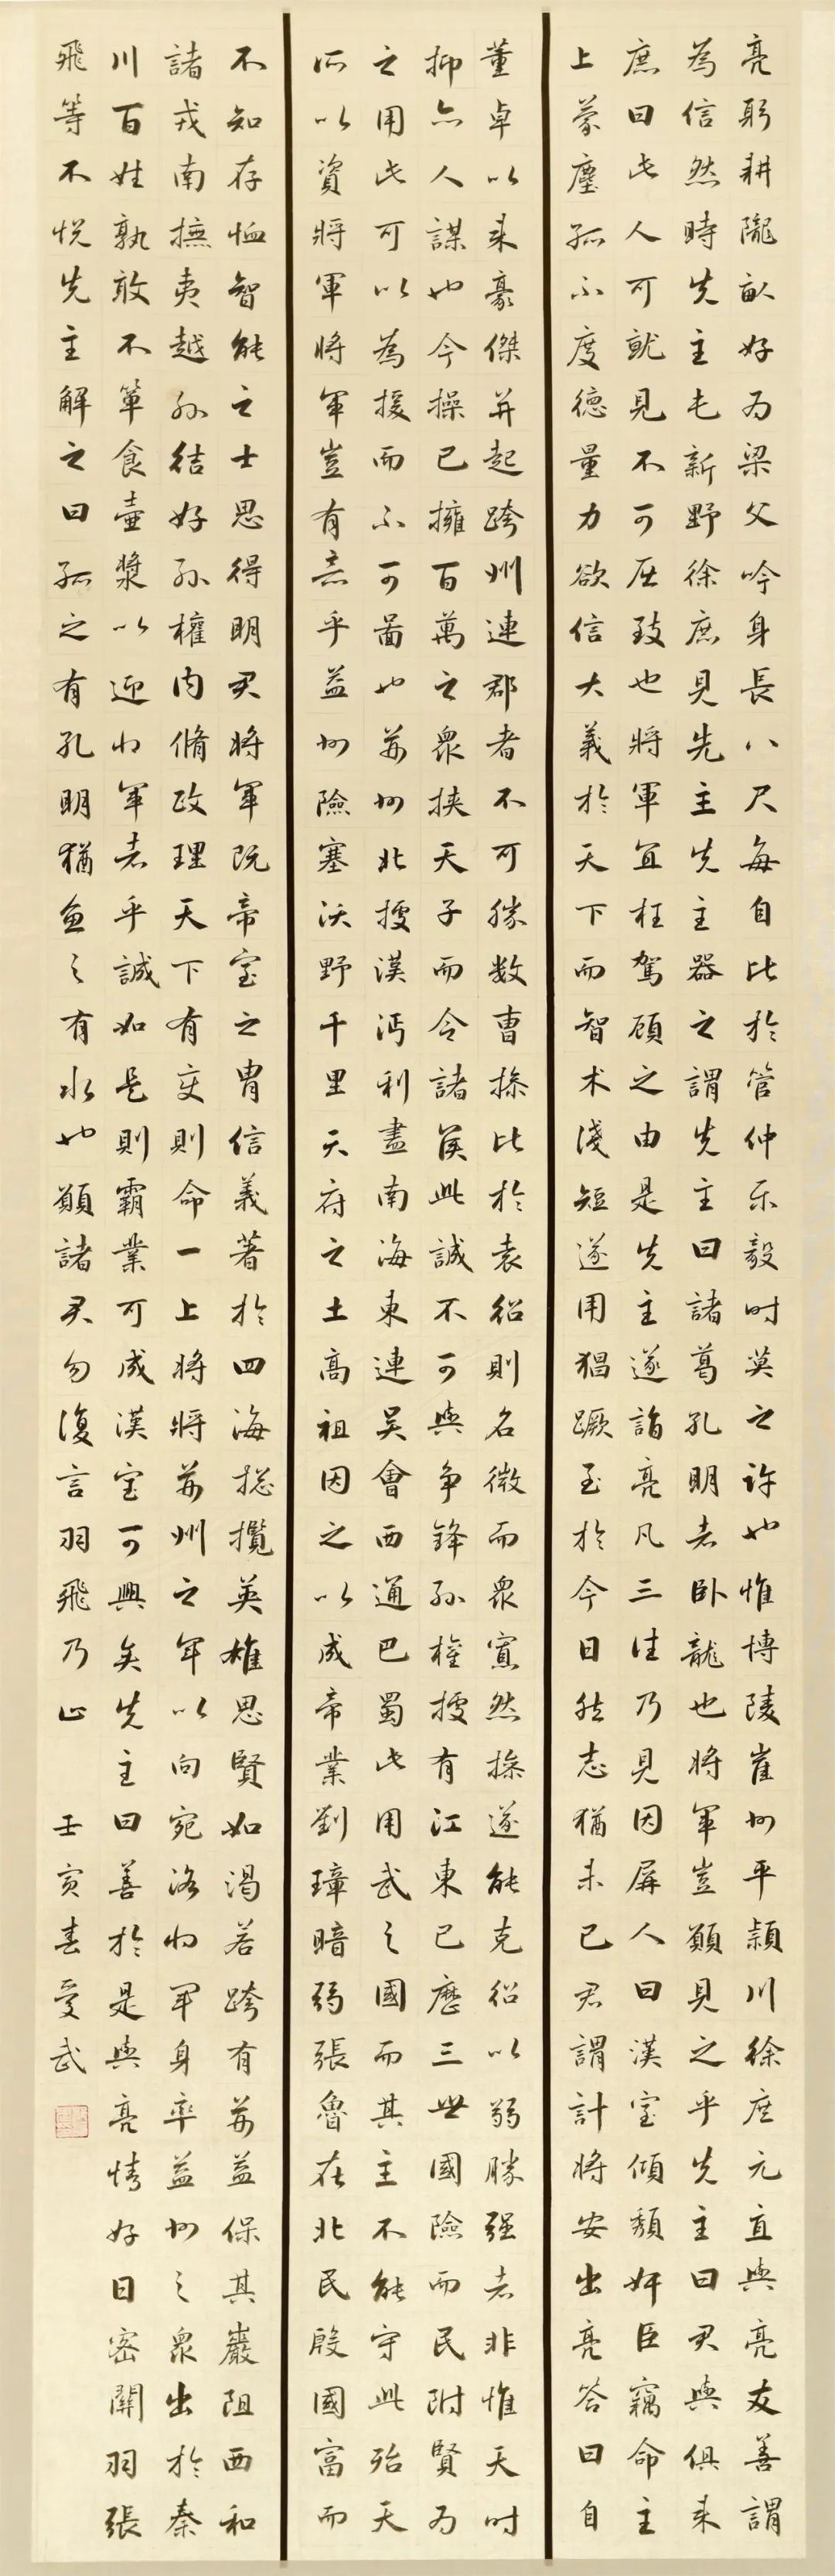 亮躬耕隴畝好为梁父吟身長八尺每自比於管仲乐毅时莫之许也惟博陵崔州平潁川徐庶元直與亮友善謂
為信然時先主屯新野徐庶見先主先主器之謂先主曰諸葛孔明者卧龍也將軍豈願見之乎先主曰君與俱来
庶曰此人可就見不可屈致也將軍宜枉駕顾之由是先主遂詣亮凡三往乃見因屏人曰漢室傾頹奸臣竊命主
上蒙塵孤不度德量力欲信大義於天下而智术淺短遂用猖蹶至於今日然志猶未已君謂計將安出亮答曰自
董卓以来豪傑并起跨州連郡者不可勝数曹操比於袁绍則名微而衆寡然操遂能克绍以弱勝强者非惟天时
抑亦人謀也今操已擁百萬之衆挟天子而令諸侯此誠不可與争鋒孙權據有江東已歷三世國險而民附賢为
之用此可以為援而不可圖也荆州北據漢沔利盡南海東連吴會西通巴蜀此用武之國而其主不能守此殆天
所以資將軍將軍豈有意乎益州險塞沃野千里天府之土高祖因之以成帝業劉璋暗弱張魯在北民殷國富而
不知存恤智能之士思得明君將軍既帝室之胄信義著於四海摠攬英雄思賢如渴若跨有荆益保其巖阻西和
諸戎南撫夷越外结好孙權内脩政理天下有变則命一上將將荆州之军以向宛洛将军身率益州之衆出於秦
川百姓孰敢不箪食壺漿以迎将军者乎誠如是則霸業可成漢室可興矣先主曰善於是與亮情好日密關羽張
飛等不悦先主解之曰孤之有孔明猶魚之有水也願諸君勿復言羽飛乃止 壬寅春受武